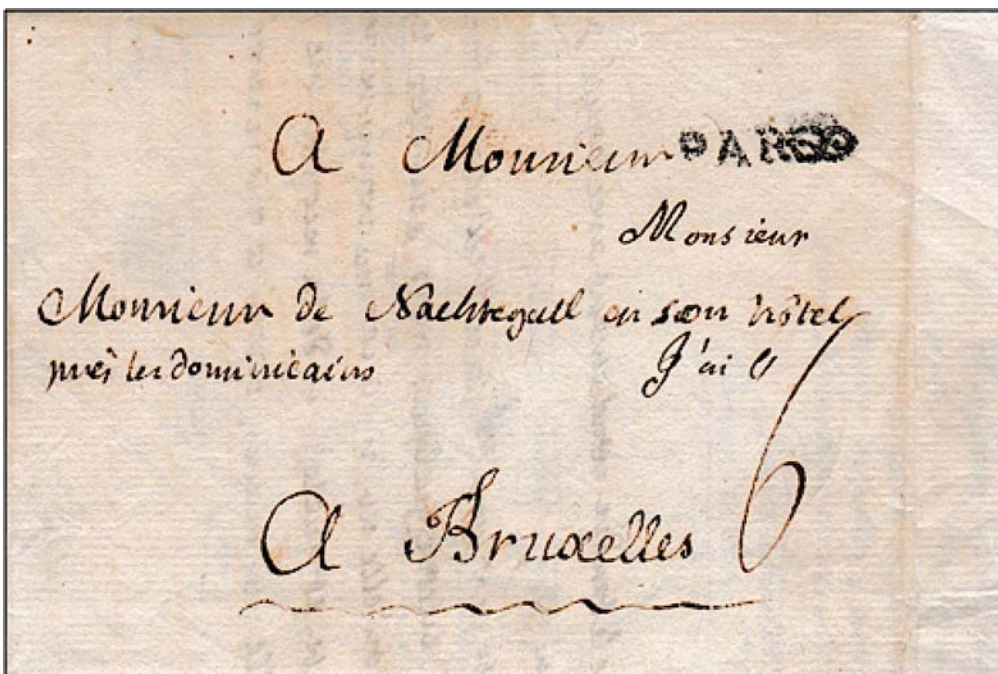 A Monsieur
Monsieur
Monsieur de Nachtegall en son hôtel
près les dominicains
A Bruxelles
6